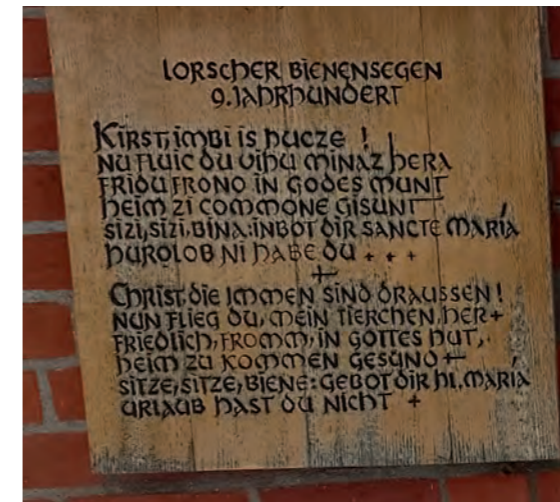 LORSCHER BIENENSEGEN
9. JAHRHUNDERT
KIRST, IMBI IS HUCZE !
NU FLUIC DU VIHU MINAZ HERA
FRIDU FRONO IN GODES MUNT
HEIM ZI COMMONE GISUNT
SIZI, SIZI, BINA: INBOT DIR SANCTE MARÍA
HUROLOB NI HABE DU + + +
+
CHRIST, DIE IMMEN SIND DRAUSSEN !
NUN FLIEG DU, MEIN TIERCHEN, HER +
FRIEDLICH, FROMM, IN GOTTES HUT,
HEIM ZU KOMMEN GESUND +
SITZE, SITZE, BIENE: GEBOT DIR HL. MARÍA
URLAUB HAST DU NICHT +